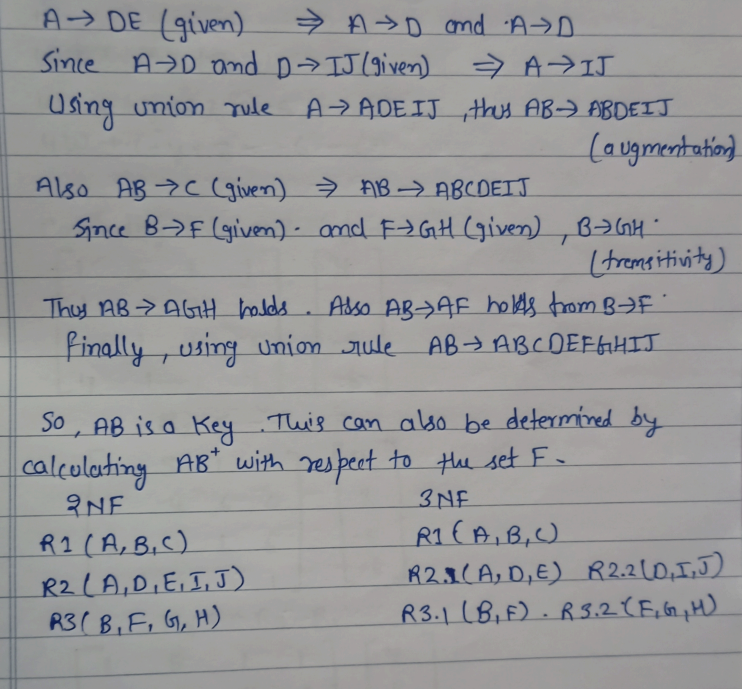 A → DE (given) ⇒ A → D and A → D
Since A → D and D → IJ (given) ⇒ A → IJ
Using union rule A → ADEIJ, thus AB → ABDEIJ
(augmentation)
Also AB → C (given) ⇒ AB → ABCDEIJ
Since B → F (given). and F → GH (given), B → GH.
(transitivity)
Thus AB → AGH holds. Also AB → AF holds from B → F.
Finally, using union rule AB → ABCDEFGHIJ
So, AB is a Key. This can also be determined by
calculating AB⁺ with respect to the set F.
2NF 3NF
R1 (A, B, C) R1 (A, B, C)
R2 (A, D, E, I, J) R2.1 (A, D, E) R2.2 (D, I, J)
R3 (B, F, G, H) R3.1 (B, F). R3.2 (F, G, H)